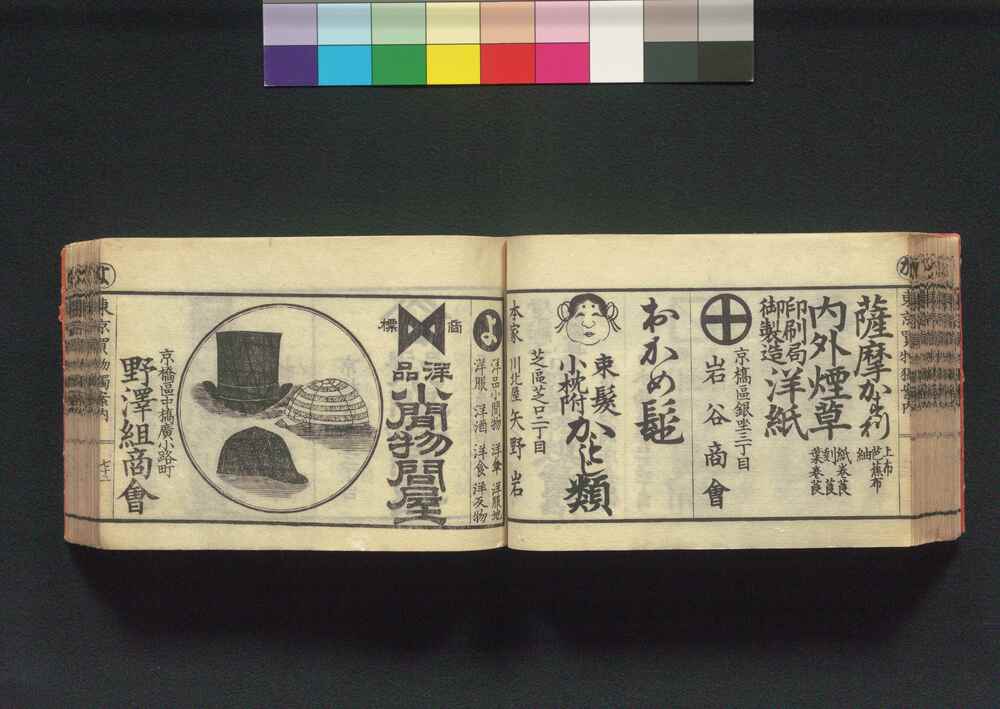 か
東京買物獨案内
薩摩かすり
上布
芭蕉布
紬
内外煙草
紙巻莨
刻莨
葉巻莨
印刷局
御製造
洋紙
京橋區銀座三丁目
岩谷商會
おかめ髢
束髪
小枕附
かもじ類
芝區芝口二丁目
本家 川北屋 矢野岩
よ
洋品小間物 洋傘 洋服地
洋服 洋酒 洋食 洋反物
商標
洋品
小間物問屋
京橋區中橋廣小路町
野澤組商會
よ
東京買物獨案内
七十二